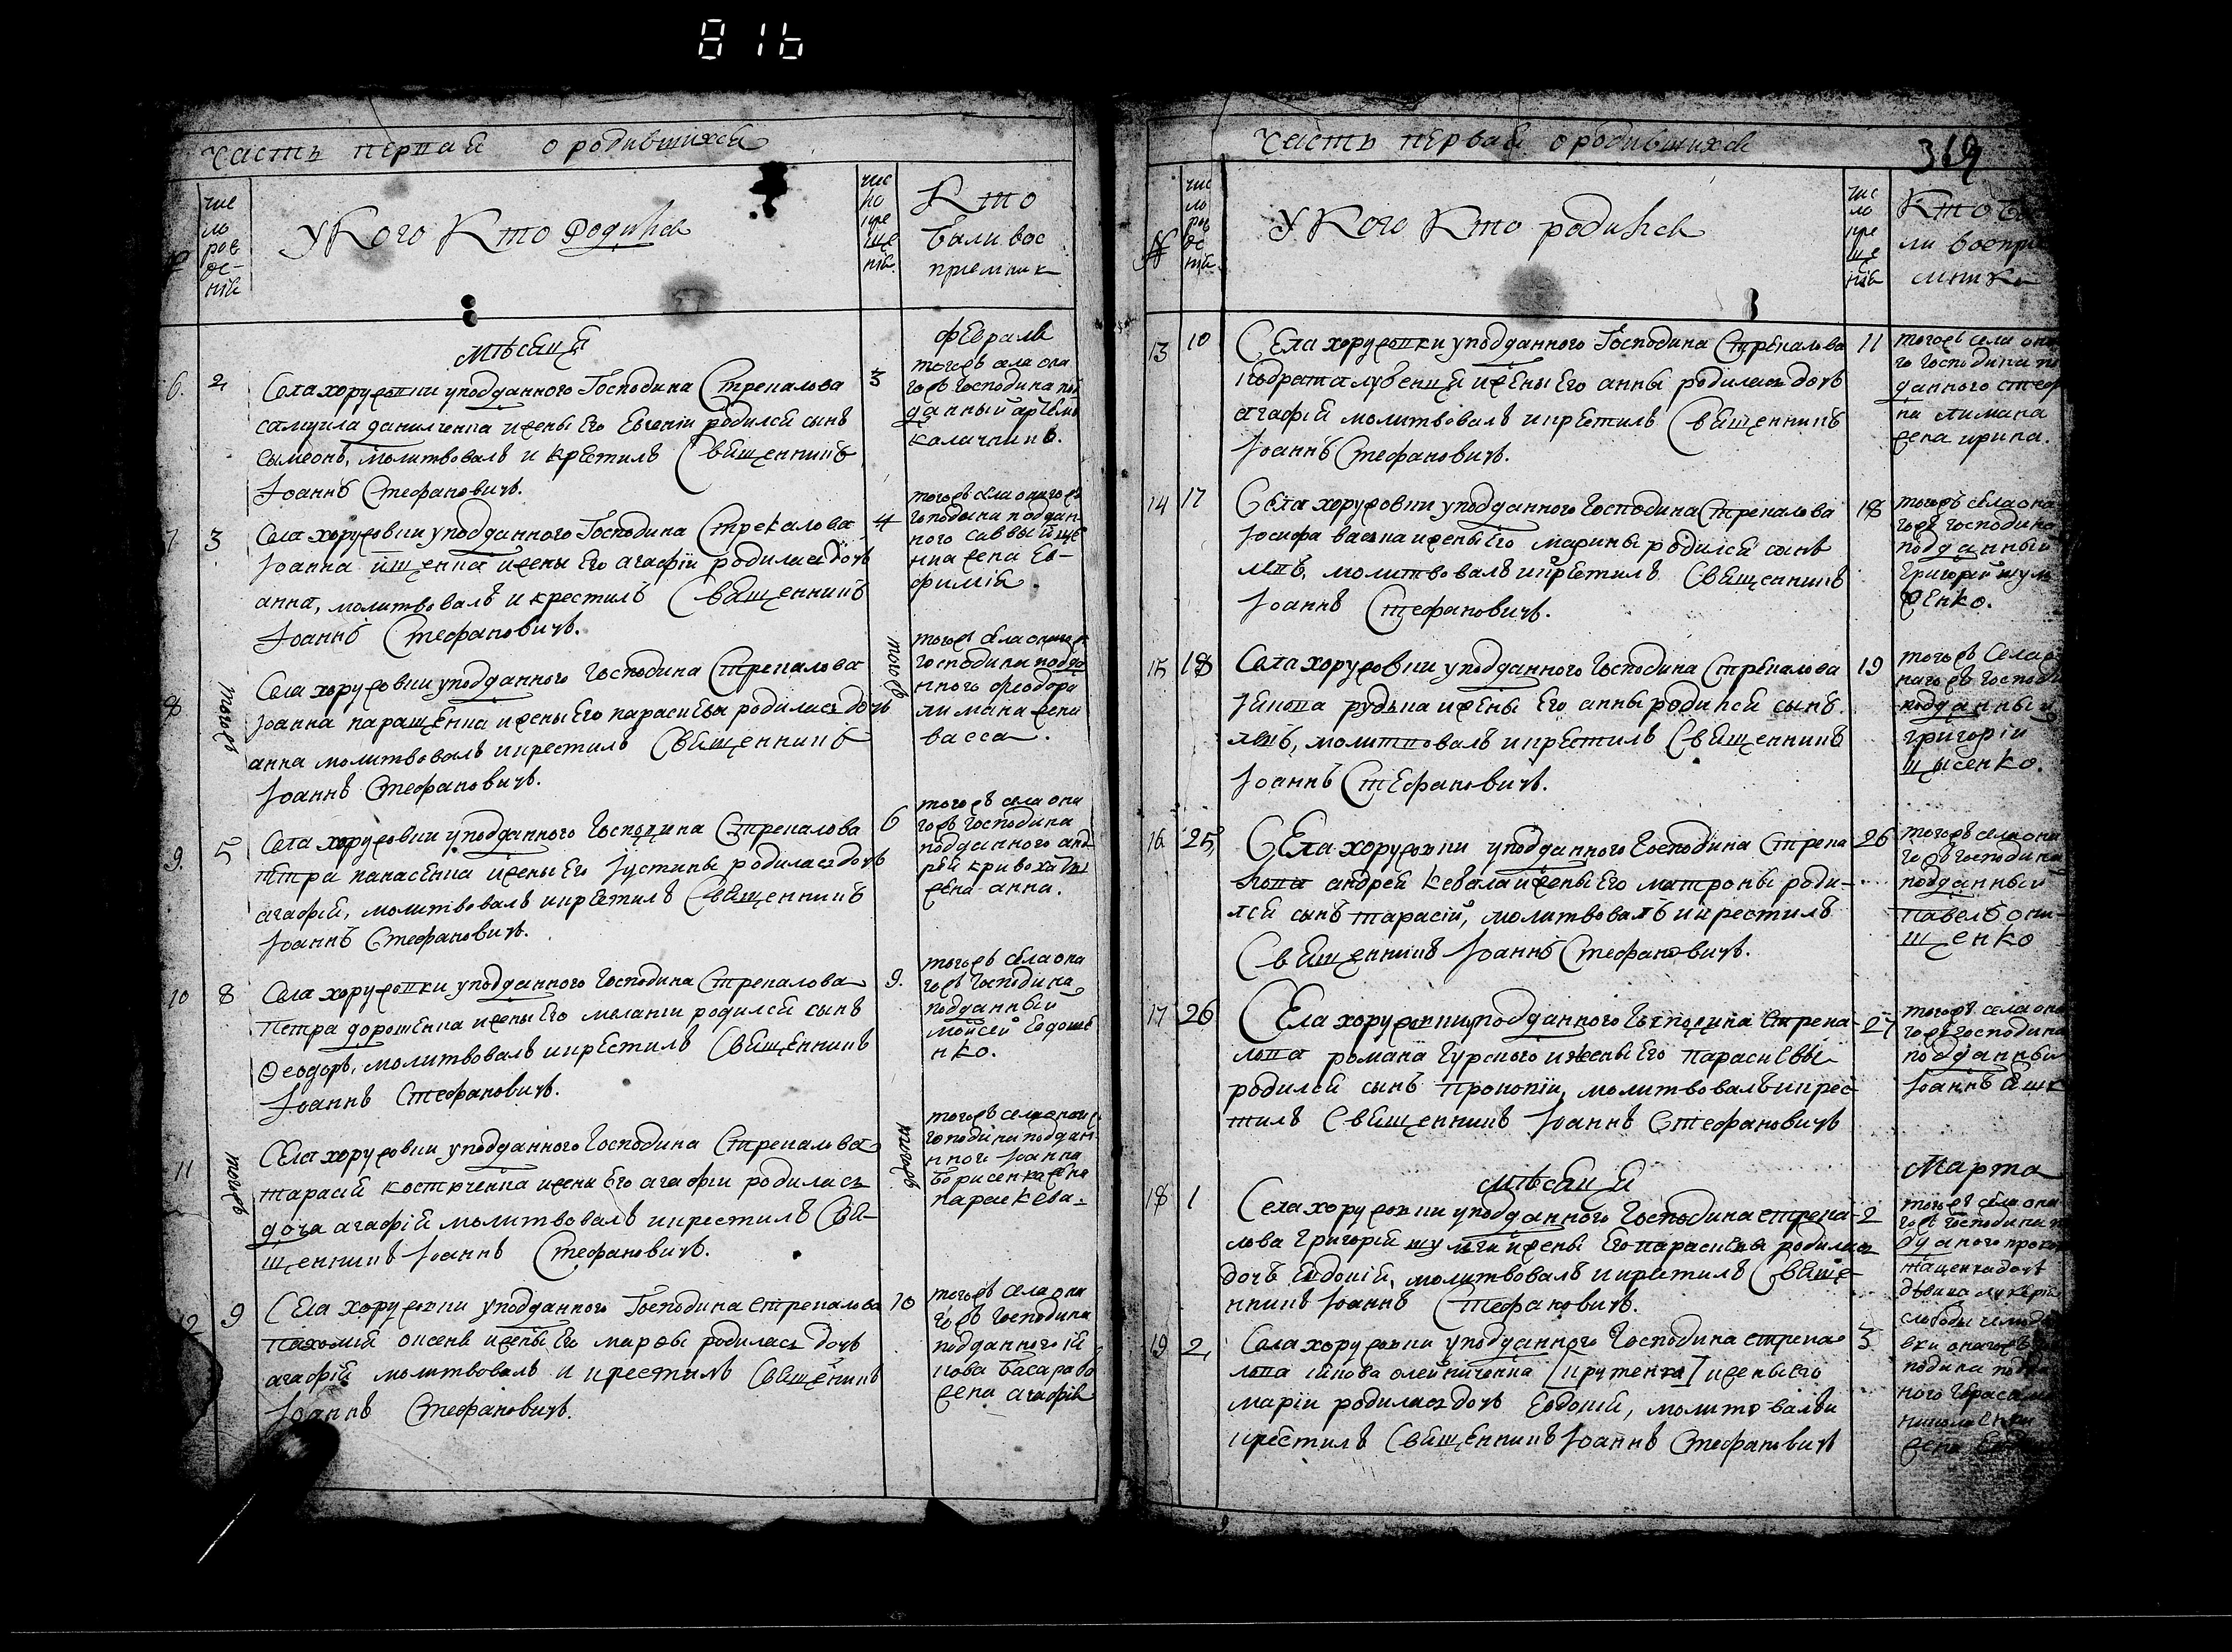 816
Часть первая о родившихся
№
чис
ло
рож
де-
нія
У Кого Кто родился
чис
ло
кре
ще
нія
Кто
были вос
приемник
мѣсяца
февраля
6. 2 Села хоружовки у подданного Господина Стрекалова 3
самуила данилченка и жены Его Евгеніи родился сынъ
сымеонъ, молитвовалъ и крестилъ Священникъ
Іоаннъ Стефановичъ.
тогожъ села она
гожъ Господина под
данный артемъ
7 3 Села хоружовки у подданного Господина Стрекалова 4
Іоанна йщенка и жены Его агафіи родилась дочь
анна, молитвовалъ и крестилъ Священникъ
Іоаннъ Стефановичъ.
тогожъ села оногожъ
господина поддан
ного саввы йще
нка жена Ев-
фимія.
8 тогожъ Села хоружовки у подданного Господина Стрекалова тогожъ
Іоанна паращенка и жены Его параскевы родилась дочь
анна молитвовалъ и крестилъ Священникъ
Іоаннъ Стефановичъ.
тогожъ села
господина подда
нного феодора
лимана жена
васса.
9. 5 Села хоружовки у подданного Господина Стрекалова 6
петра панасенка и жены Его Іустины родилась дочь
агафія, молитвовалъ и крестилъ Священникъ
Іоаннъ Стефановичъ.
тогожъ села она
гожъ Господина
подданного анд
рея
жена анна.
10 8 Села хоружовки у подданного Господина Стрекалова 9.
Петра дорошенка и жены Его меланіи родился сынъ
Ѳеодоръ, молитвовалъ и крестилъ Священникъ
Іоаннъ Стефановичъ.
тогожъ села она
гожъ Господина
подданный
мойсей Евдоше
нко.
11 тогожъ Села хоружовки у подданного Господина Стрекалова тогожъ
тарасія костюченка и жены Его агафіи родилась
доча агафія молитвовалъ и крестилъ Свя-
щенникъ Іоаннъ Стефановичъ.
тогожъ села
господина поддан
нного Іоанна
Борисенка жена
параскева.
12 9 Села хоружовки у подданного Господина Стрекалова 10
пахомія оксенъ и жены Его марѳы родилась дочь
агафія молитвовалъ и крестилъ Священникъ
Іоаннъ Стефановичъ.
тогожъ села она
гожъ Господина
подданного Iя
кова
жена агафія
Часть первая о родившихся 319
№
чис
ло
рож
де
нія
У Кого Кто родился
чис
ло
кре
ще
нія
Кто бы
ли воспри
емники
13 10 Села хоружовки у подданного Господина Стрекалова 11
кодрата лубенця и жены Его анны родилась дочь
агафія молитвовалъ и крестилъ Священникъ
Іоаннъ Стефановичъ.
тогожъ села она
го господина по
данного стеф
на лимана
жена ирина.
14 17 Села хоружовки у подданного Господина Стрекалова 18
Іосифа васка и жены Его марины родился сынъ
левъ, молитвовалъ и крестилъ Священникъ
Іоаннъ Стефановичъ.
тогожъ села она
гожъ господина
подданный
Григорій шуль
женко.
15 18 Села хоружовки у подданного Господина Стрекалова 19
рудька и жены Его анны родился сынъ
левъ, молитвовалъ и крестилъ Священникъ
Іоаннъ Стефановичъ.
тогожъ Села о
нагожъ Господи
подданный
григорій
16 25 Села хоружовки у подданного Господина Стрека 26
лова андрея кебала и жены Его матроны роди-
лся сынъ тарасій, молитвовалъ и крестилъ
Священникъ Іоаннъ Стефановичъ.
тогожъ села она
гожъ господина
подданный
павелъ они-
щенко
17 26 Села хоружовки у подданного Господина Стрека- 27
лова романа гурского и жены Его параскевы
родился сынъ прокопій, молитвовалъ и крес-
тилъ Священникъ Іоаннъ Стефановичъ
тогожъ села она
гожъ господина
подданный
Іоаннъ
мѣсяца
Марта
18 1 Села хоружовки у подданного Господина стрека- 2
лова григорія шульги и жены Его параскевы родилась
дочь Евдокія, молитвовалъ и крестилъ Священ-
нникъ Іоаннъ Стефановичъ.
тогожъ села она
гожъ господина п
дданого
дочь
дѣвица
19 2 Села хоружовки у подданного Господина стрека- 3
лова іякова олейниченка [крутенка] и жены Его
маріи родилась дочь Евдокія, молитвовалъ и
крестилъ Священникъ Іоаннъ Стефановичъ
слободы
вки оногожъ го
подина подда
ного Гераси
николаенка
жена